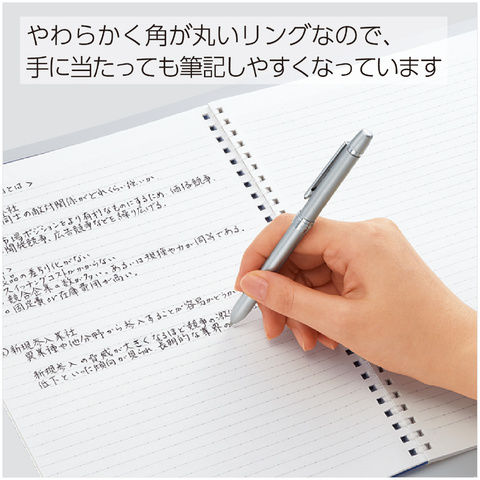 やわらかく角が丸いリングなので、
手に当たっても筆記しやすくなっています
とは >
社
同士の敵対関係がどれくらい強いか
市場ポジションをより有利なものにするため、価格競争、
開発競争、広告競争などを繰り広げる。
品の差別化がない
スイッチングコストがかからない
競合企業の数が多い、あるいは規模や力が同等である。
固定費や在庫費用が高い。
新規参入業社
異業種や他分野から参入することが容易かどうか
新規参入の脅威が大きくなるほど競争の激
低下といった傾向が見られ 長期的な業界の